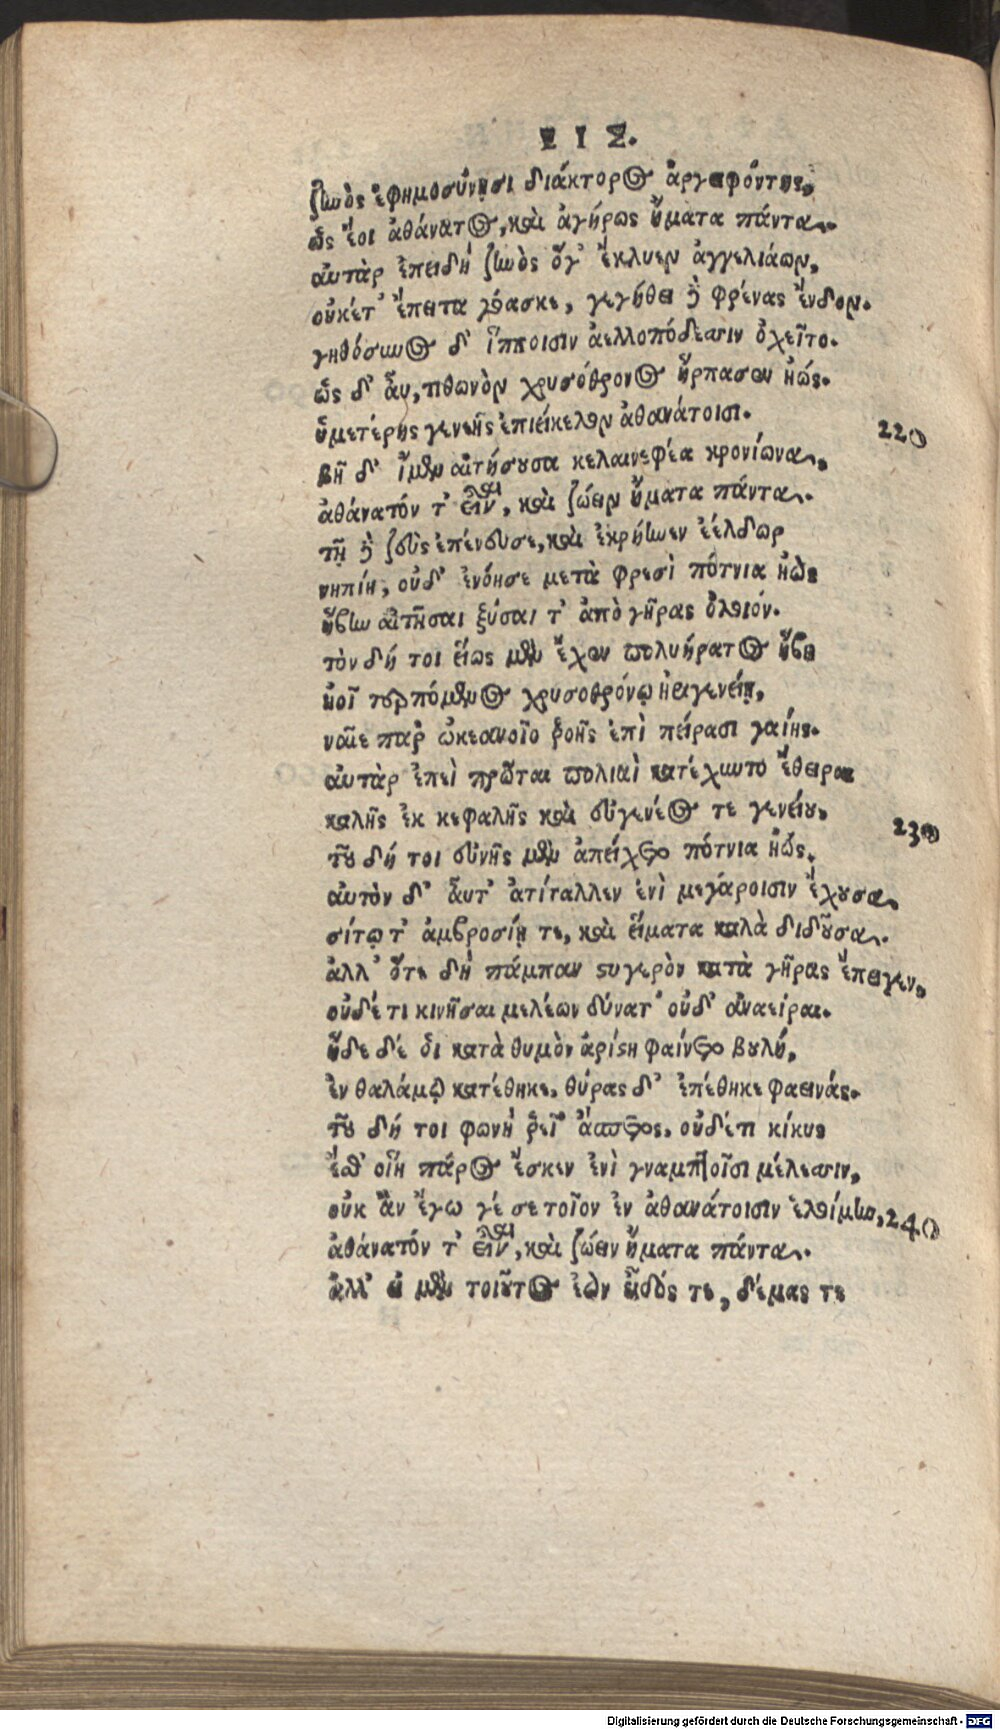 ΕΙΣ.
ζηνὸς ἐφημοσύνῃσι διάκτορος ἀργειφόντης,
ὡς ἔοι ἀθάνατος, καὶ ἀγήρως ἤματα πάντα.
αὐτὰρ ἐπειδὴ ζηνὸς ὅγ' ἔκλυεν ἀγγελιάων,
οὐκέτ' ἔπειτα γόασκε, γεγήθει δὲ φρένας ἔνδον.
γηθόσυνος δ' ἵπποισιν ἀελλοπόδεσσιν ὀχεῖτο.
ὣς δ' αὖ, τιθωνὸν χρυσόθρονος ἥρπασεν ἠώς.
ὑμετέρης γενεῆς ἐπιείκελον ἀθανάτοισι. 220
βῆ δ' ἴμεν αἰτήσουσα κελαινεφέα κρονίωνα,
ἀθάνατόν τ' εἶναι, καὶ ζώειν ἤματα πάντα.
τῇ δὲ ζεὺς ἐπένευσε, καὶ ἐκρήηνεν ἐέλδωρ
νηπίη, οὐδ' ἐνόησε μετὰ φρεσὶ πότνια ἠὼς
ἥβην αἰτῆσαι ξύσαι τ' ἀπὸ γῆρας ὀλοιόν.
τὸν δή τοι εἵως μὲν ἔχεν πολυήρατος ἥβη
ἠοῖ τερπόμενος χρυσοθρόνῳ ἠειγενείῃ,
ναῖε παρ' ὠκεανοῖο ῥοῆς ἐπὶ πείρασι γαίης.
αὐτὰρ ἐπεὶ πρῶται πολιαὶ κατέχυντο ἔθειραι
καλῆς ἐκ κεφαλῆς καὶ εὐγενέος τε γενείου, 230
τοῦ δή τοι εὐνῆς μὲν ἀπείχετο πότνια ἠώς.
αὐτὸν δ' αὖτ' ἀτίταλλεν ἐνὶ μεγάροισιν ἔχουσα,
σίτῳ τ' ἀμβροσίῃ τε, καὶ εἵματα καλὰ διδοῦσα.
ἀλλ' ὅτε δὴ πάμπαν στυγερὸν κατὰ γῆρας ἔπειγεν,
οὐδέ τι κινῆσαι μελέων δύνατ' οὐδ' ἀναεῖραι.
ἥδε δέ οἱ κατὰ θυμὸν ἀρίστη φαίνετο βουλή,
ἐν θαλάμῳ κατέθηκε, θύρας δ' ἐπέθηκε φαεινάς.
τοῦ δή τοι φωνὴ ῥεῖ ἄσπετος, οὐδέ τι κίκυς
ἔσθ' οἵη πάρος ἔσκεν ἐνὶ γναμπτοῖσι μέλεσσιν,
οὐκ ἂν ἔγω γέ σε τοῖον ἐν ἀθανάτοισιν ἑλοίμην, 240
ἀθάνατόν τ' εἶναι, καὶ ζώειν ἤματα πάντα.
ἀλλ' εἰ μὲν τοιοῦτος ἐὼν εἶδός τε, δέμας τε
Digitalisierung gefördert durch die Deutsche Forschungsgemeinschaft - DFG